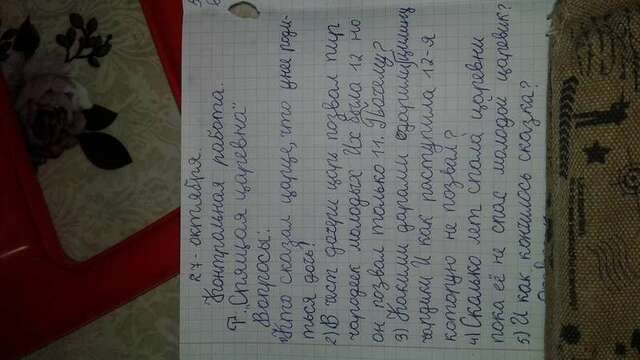 27- октября.
Контрольная работа.
Т. „Спящая царевна"
Вопросы:
1) Кто сказал царице, что унее роди-
ться дочь?
2) В чест дочери царь позвал пир
чародеек молодых Их была 12 но
он позвал только 11. Почему?
3) Какими дарами одарили
чардики И как раступила 12-я
которую не позвал?
4) Сколько лет спала царевни
пока её не спас молодой царевик?
5) И как кончилось сказка?